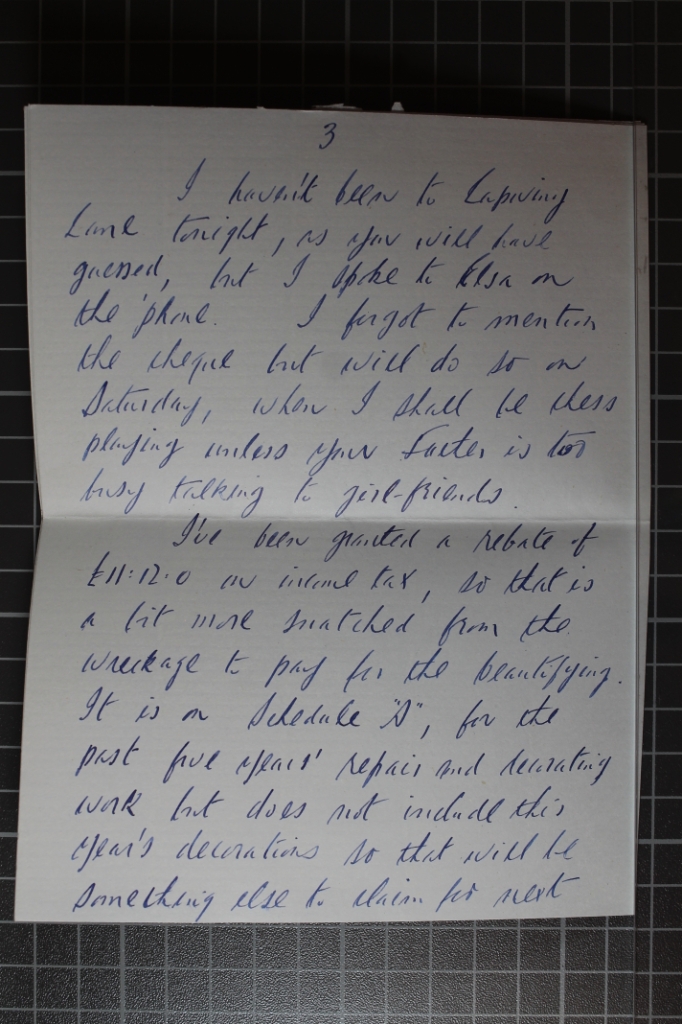 3
I haven't been to Lapwing
Lane tonight, as you will have
guessed, but I spoke to Elsa on
the 'phone. I forgot to mention
the cheque but will do so on
Saturday, when I shall be chess
playing unless your Father is too
busy talking to girl-friends.
I've been granted a rebate of
£11:12:0 on income tax, so that is
a bit more snatched from the
wreckage to pay for the beautifying.
It is on Schedule "A", for the
past five years' repair and decorating
work but does not include this
year's decorations so that will be
something else to claim for next